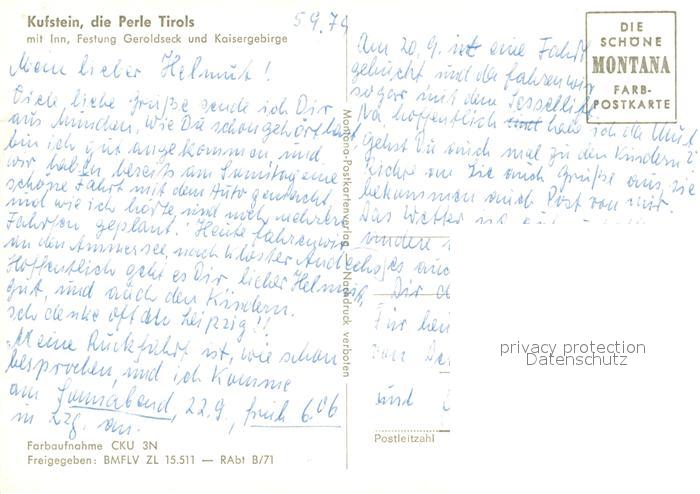 Kufstein, die Perle Tirols
mit Inn, Festung Geroldseck und Kaisergebirge
5.9.79
Mein lieber Helmut!
Viele liebe Grüße sende ich Dir
aus München, wie Du schon gehört hast,
bin ich gut angekommen, und
wir haben bereits am Samstag eine
schöne Fahrt mit dem Auto gemacht,
und wie ich hörte, sind noch mehrere
Fahrten geplant. Heute fahren wir
an den Ammersee, nach Kloster Andechs,
Hoffentlich geht es Dir, lieber Helmut,
gut, und auch den Kindern.
Ich denke oft an Leipzig!!
Meine Rückfahrt ist, wie schon
besprochen, und ich komme
am Sonnabend, 22.9., früh 6.06
in Lzg. an.
Farbaufnahme CKU 3N
Freigegeben: BMFLV ZL 15.511 — RAbt B/71
Montana-Postkartenverlag — Nachdruck verboten
Am 20.9. ist eine Fahrt
gebucht und da fahren wir
sogar mit dem Sessellift
Na hoffentlich habe ich da Mut.
gehst Du auch mal zu den Kindern?
Richte an Sie auch Grüße aus, sie
bekommen auch Post von mir.
Das Wetter ist
es auch
Dir
Für
von
und
DIE
SCHÖNE
MONTANA
FARB-
POSTKARTE
privacy protection
Datenschutz
Postleitzahl